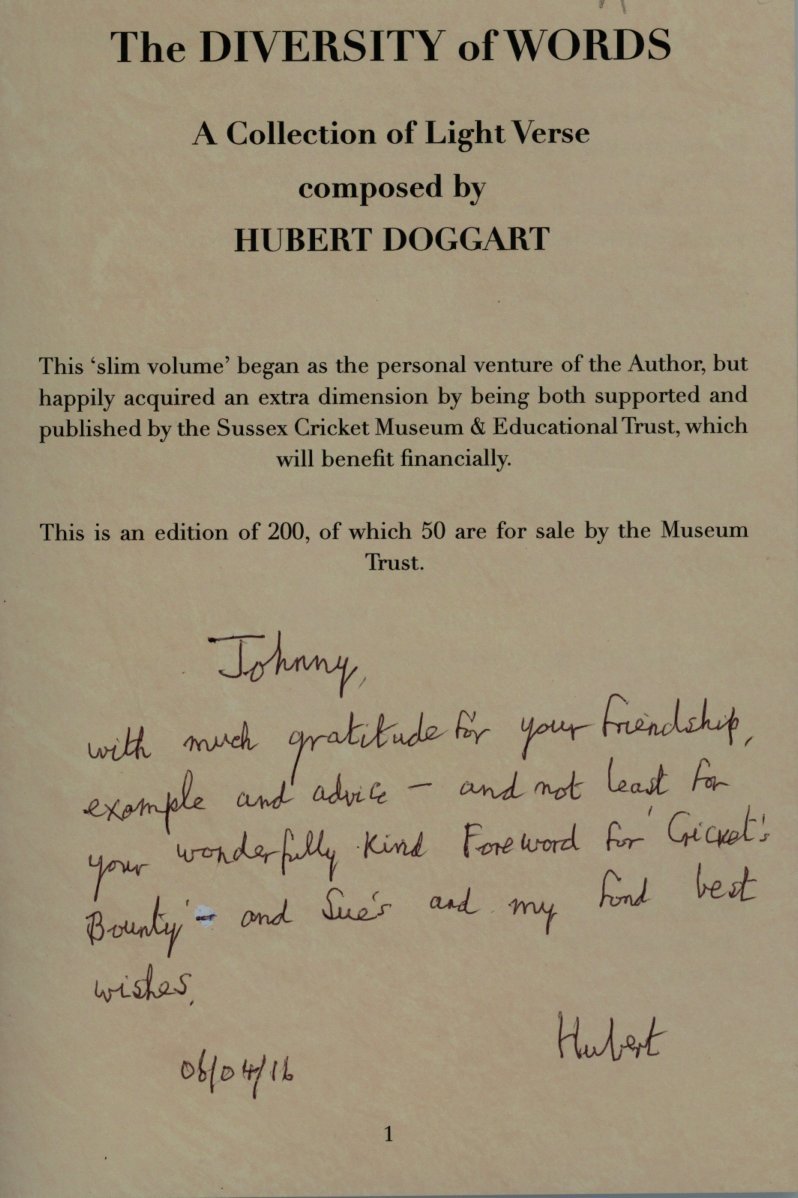 The DIVERSITY of WORDS
A Collection of Light Verse
composed by
HUBERT DOGGART
This ‘slim volume’ began as the personal venture of the Author, but
happily acquired an extra dimension by being both supported and
published by the Sussex Cricket Museum & Educational Trust, which
will benefit financially.
This is an edition of 200, of which 50 are for sale by the Museum
Trust.
Johnny,
with much gratitude for your friendship,
example and advice – and not least for
your wonderfully kind Foreword for 'Cricket's
Bounty' – and Sue's and my fond best
wishes,
Hubert
06/04/16
1